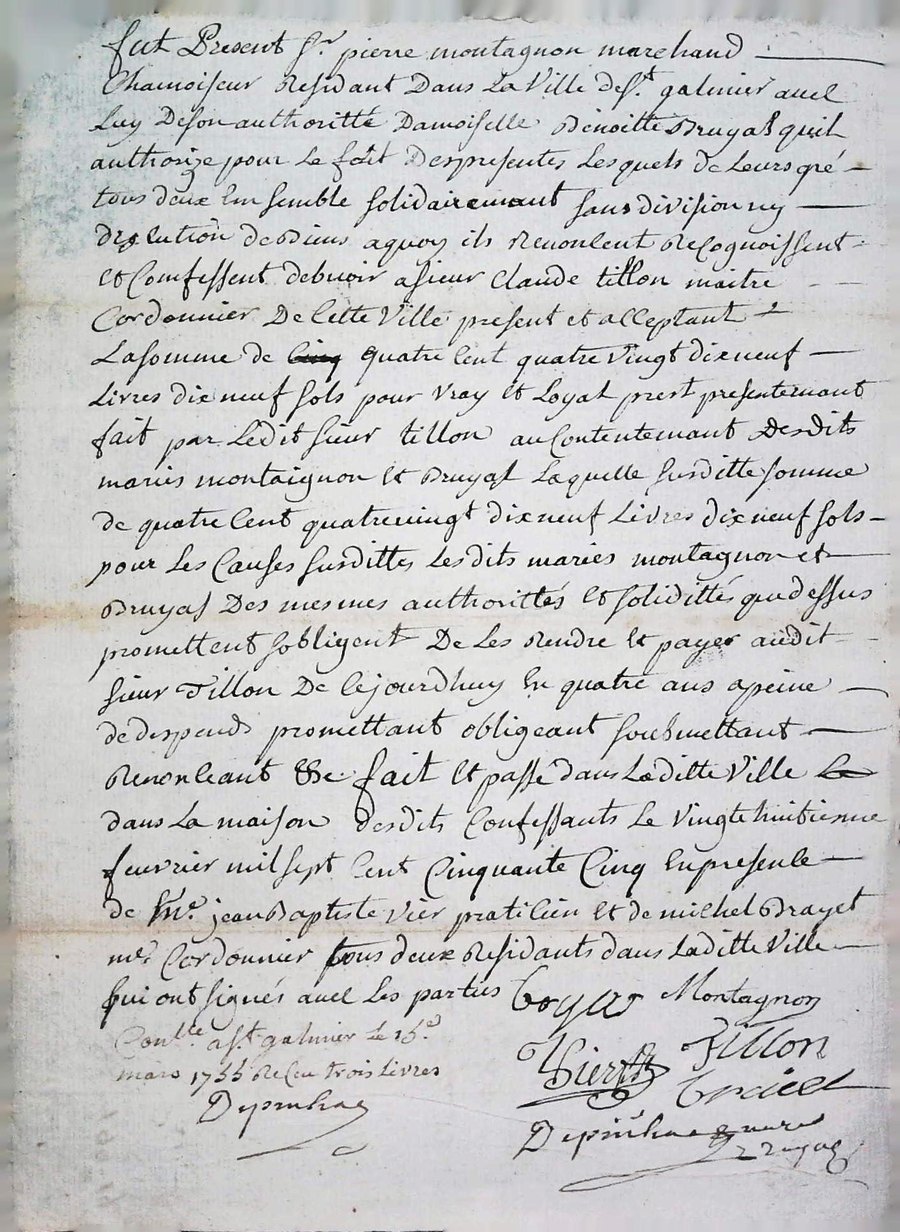 fut Present Sr. pierre montagnon marchand
Chamoiseur Residant Dans La Ville de St. galmier avec
Luy De son authoritté Damoiselle Benoitte Bruyas quil
authorize pour Le fait Des presentes Lesquels de Leurs gré
tous deux Ensemble solidairemant sans division ny
discution de Biens aquoy ils Renoncent Recognoissent
Et Comfessent debvoir a sieur Claude tillon maitre
Cordonnier De Cette Ville present et acceptant
La somme de cinq quatre Cent quatre Vingt dix neuf
Livres dix neuf sols pour Vray Et Loyal prest presentemant
fait par Ledit sieur tillon au Contentemant Desdits
mariés montaignon Et Bruyas Laquelle susditte somme
de quatre Cent quatrevingt dix neuf Livres dix neuf sols
pour Les Causes susdittes Lesdits mariés montagnon et
Bruyas Des mesmes authorittés Et soliditté que dessus
promettent sobligent De Les Rendre Et payer audit
sieur Tillon De Cejourdhuy En quatre ans a peine
de despends promettant obligeant soubmettant
Renonceant &c fait Et passé dans Laditte Ville
dans La maison desdits Confessants Le Vingt huitieme
feuvrier mil sept Cent Cinquante Cinq En presence
de Me. jean Baptiste Vier praticien Et de michel Brayet
me. Cordonnier tous deux Residants dans Laditte Ville
qui ont signés avec Les parties Montagnon
Tillon
Vier
Conlle. a St. galmier Le 15e.
mars 1755 Receu trois Livres
Depinhac
Depinhac